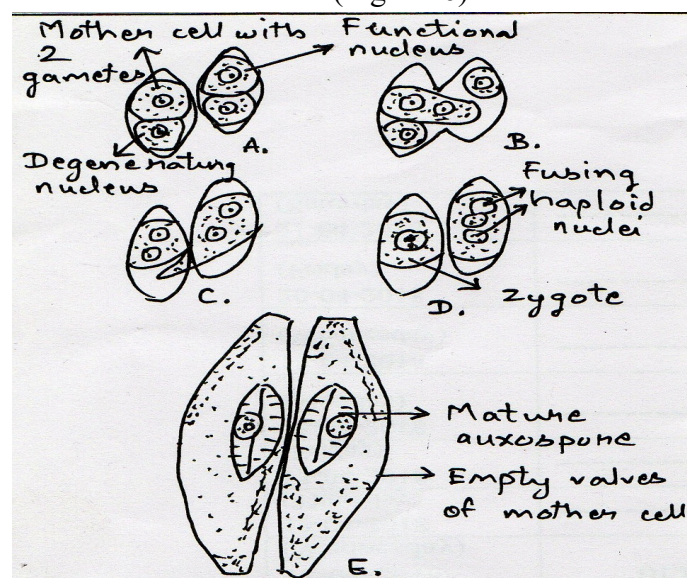 Mother cell with
2
gametes
Functional
nucleus
A.
B.
Degenerating
nucleus
Fusing
haploid
nuclei
C.
D.
zygote
Mature
auxospore
Empty valves
of mother cell
E.